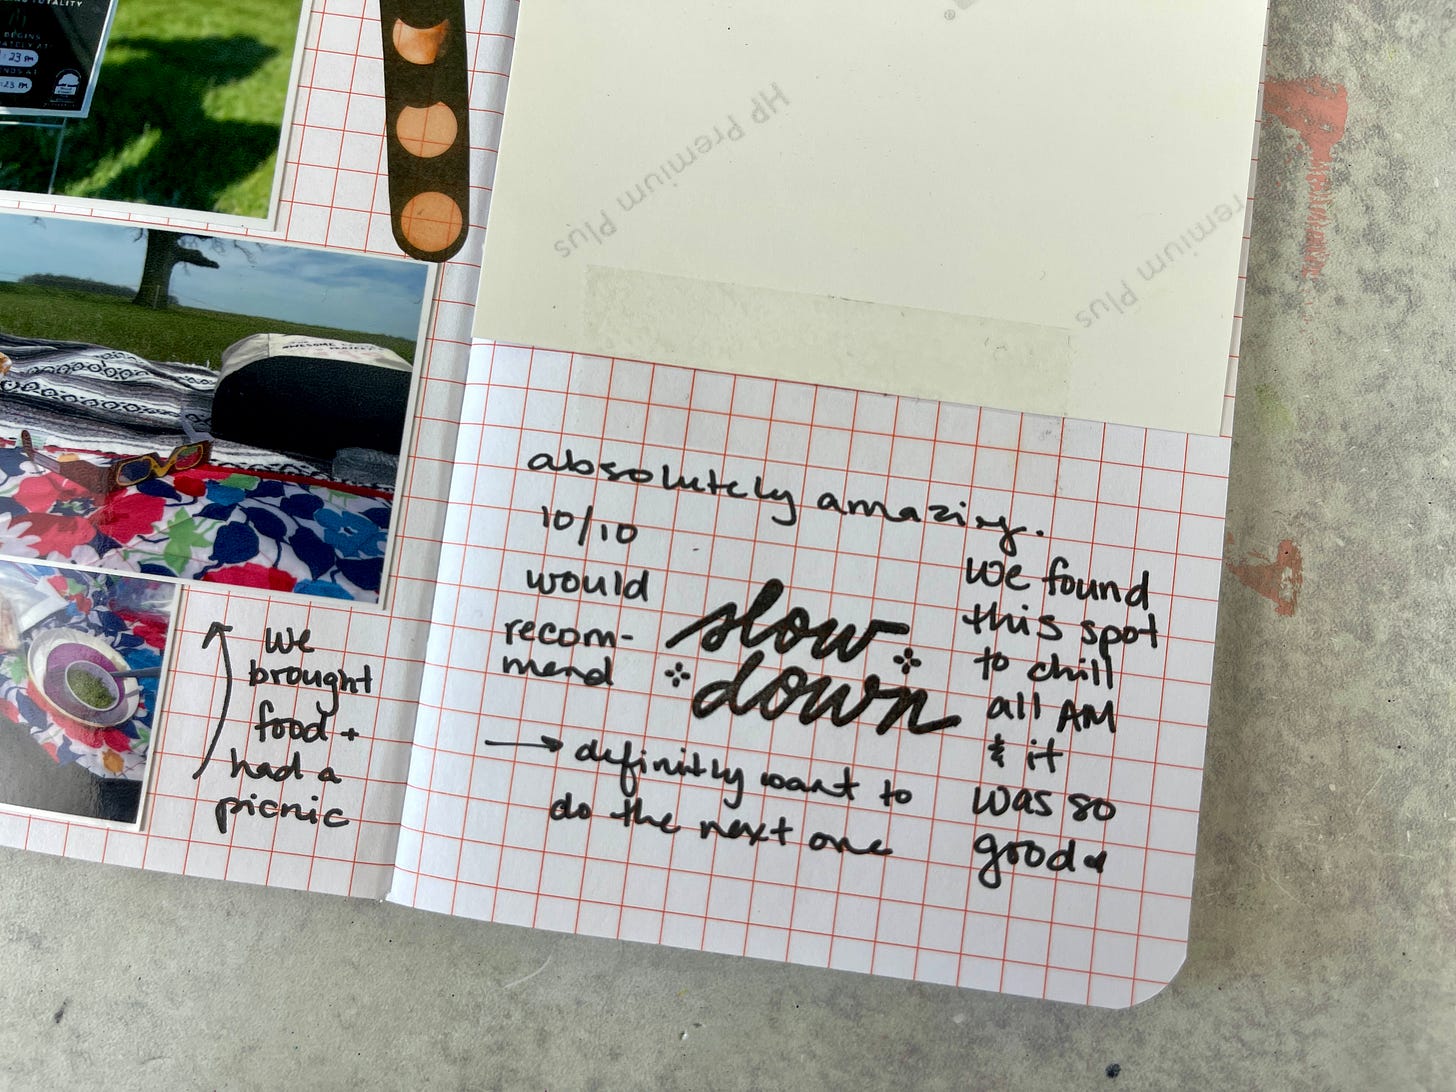 TOTALITY
BEGINS
23 PM
ENDS AT
:23 PM
AWESOME
PROJECT
we
brought
food +
had a
picnic
HP Premium Plus
remium Plus
absolutely amazing.
10/10
would
recom-
mend
slow
down
→ definitly want to
do the next one
we found
this spot
to chill
all AM
& it
was so
good